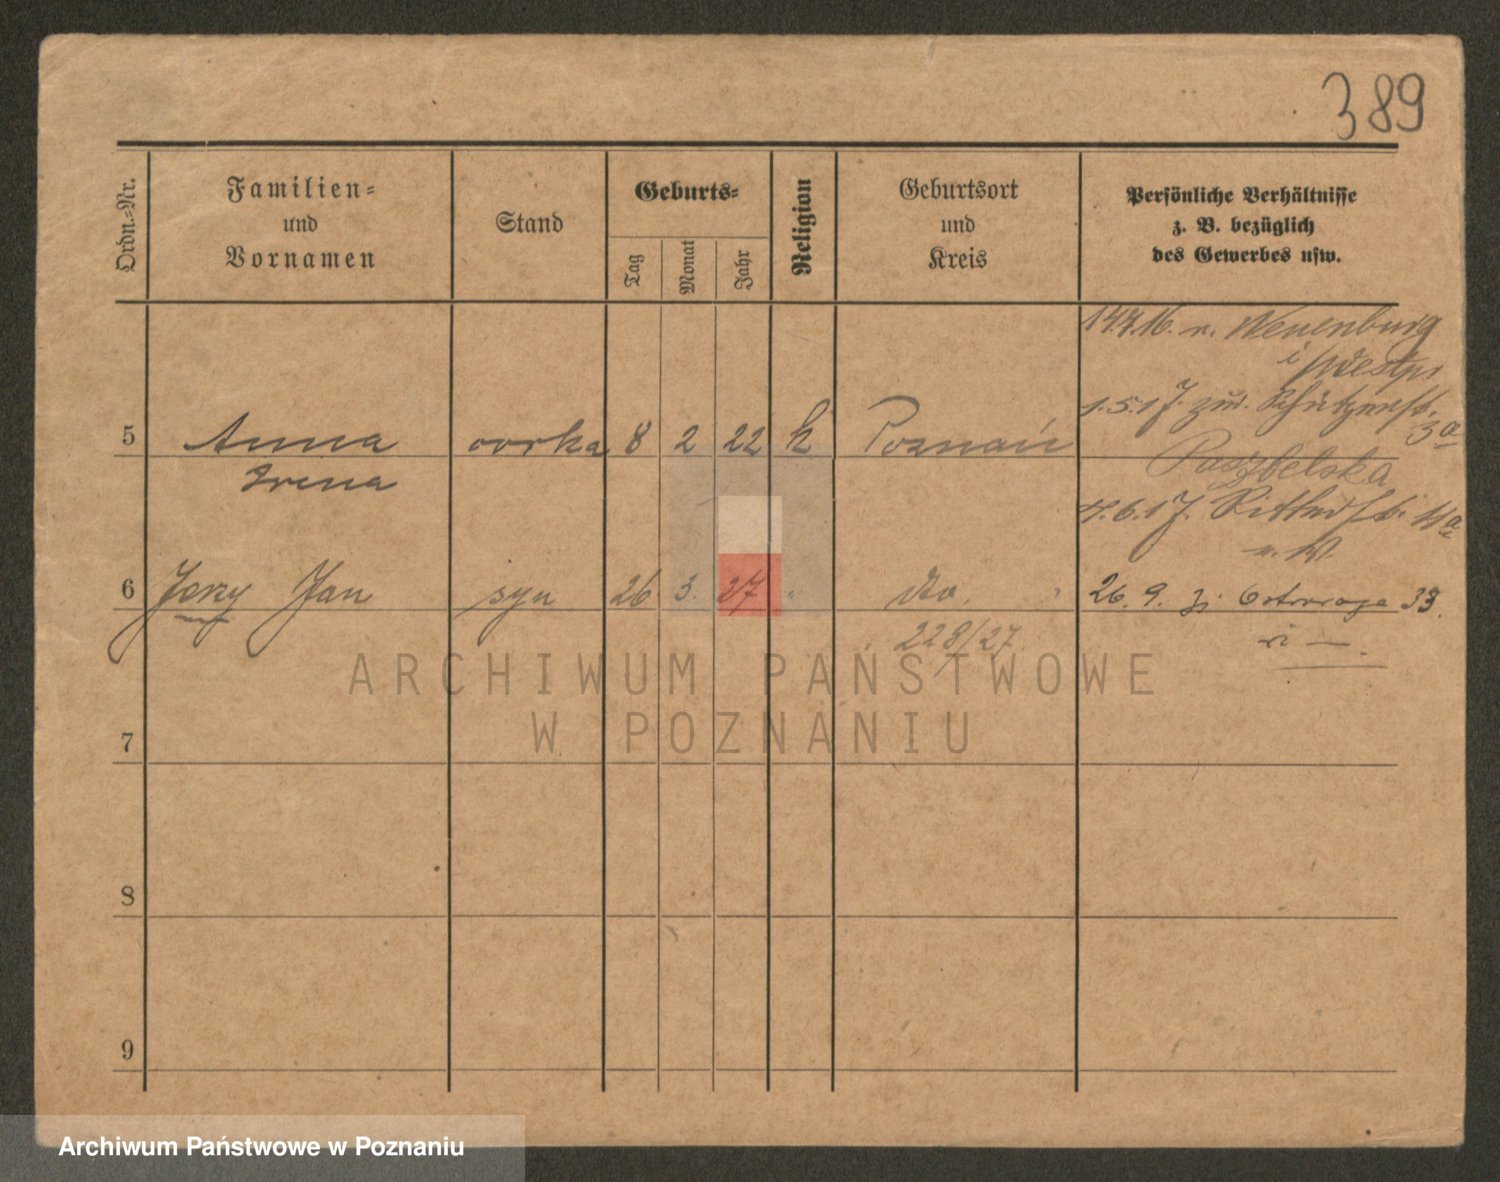 389
Ordn.=Nr.
Familien=
und
Vornamen
Stand
Geburts=
Tag
Monat
Jahr
Religion
Geburtsort
und
Kreis
Persönliche Verhältnisse
z. B. bezüglich
des Gewerbes usw.
14.7.16. n. Neuenburg
i Westpr
1.5.17. zur. Schützenstr.
3a
5 Anna córka 8 2 22 k Poznań
Irena
4.6.17. Ritterstr. 11a
n. W.
6 Jerzy Jan syn 26 3. 27 " dto.
26. 9. Ostroroga 33.
228/27
7
8
9
ARCHIWUM PAŃSTWOWE
W POZNANIU
Archiwum Państwowe w Poznaniu